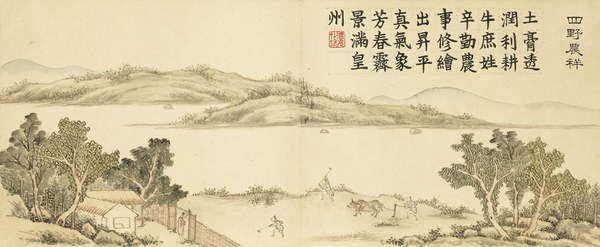 四野農祥
土膏透
潤利耕
牛庶姓
辛勤農
事修繪
出昇平
真氣象
芳春霽
景滿皇
州